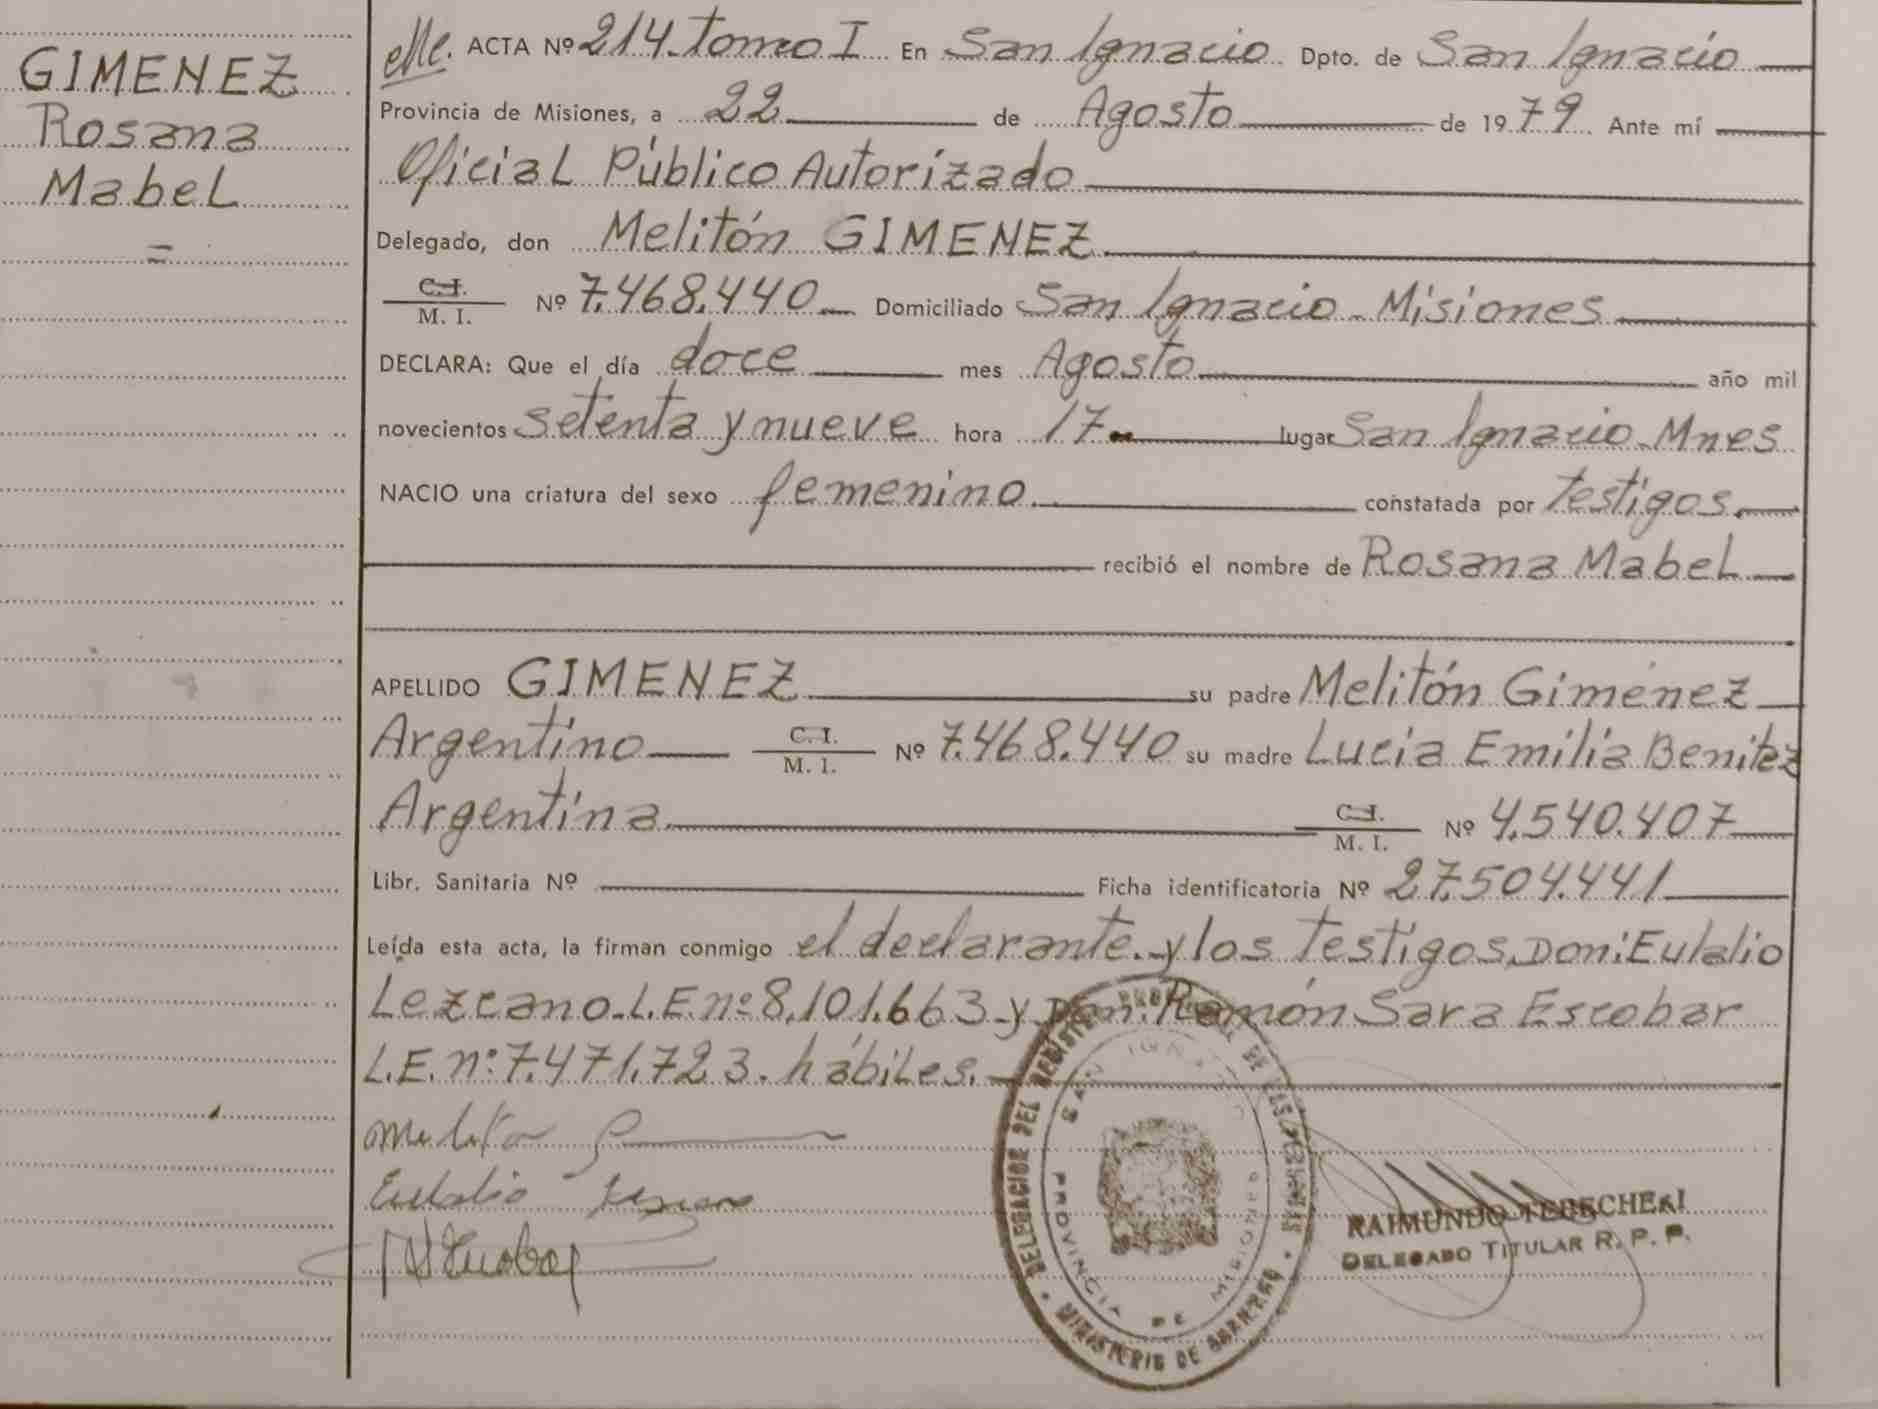 GIMENEZ
Rosana
Mabel
ACTA Nº 214 tomo I En San Ignacio Dpto. de San Ignacio
Provincia de Misiones, a 22 de Agosto de 1979 Ante mí
Oficial Público Autorizado
Delegado, don Melitón GIMENEZ
C.I.
M. I. Nº 7.468.440 Domiciliado San Ignacio - Misiones
DECLARA: Que el día doce mes Agosto año mil
novecientos setenta y nueve hora 17 lugar San Ignacio - Mnes
NACIO una criatura del sexo femenino constatada por testigos.
recibió el nombre de Rosana Mabel
APELLIDO GIMENEZ su padre Melitón Giménez
Argentino C.I.
M. I. Nº 7.468.440 su madre Lucia Emilia Benitez
Argentina C.I.
M. I. Nº 4.540.407
Libr. Sanitaria Nº Ficha identificatoria Nº 27.504.441
Leída esta acta, la firman conmigo el declarante y los testigos Don: Eulalio
Lezcano - L.E. nº 8.101.663 - y Don: Ramón Sara Escobar
L.E. nº: 7.471.723. hábiles.
Eulalio Lezcano
Escobar
DELEGACION DEL REGISTRO PROVINCIAL DE LAS PERSONAS
SAN IGNACIO
PROVINCIA DE MISIONES
MINISTERIO DE GOBIERNO
RAIMUNDO
DELEGADO TITULAR R. P. P.